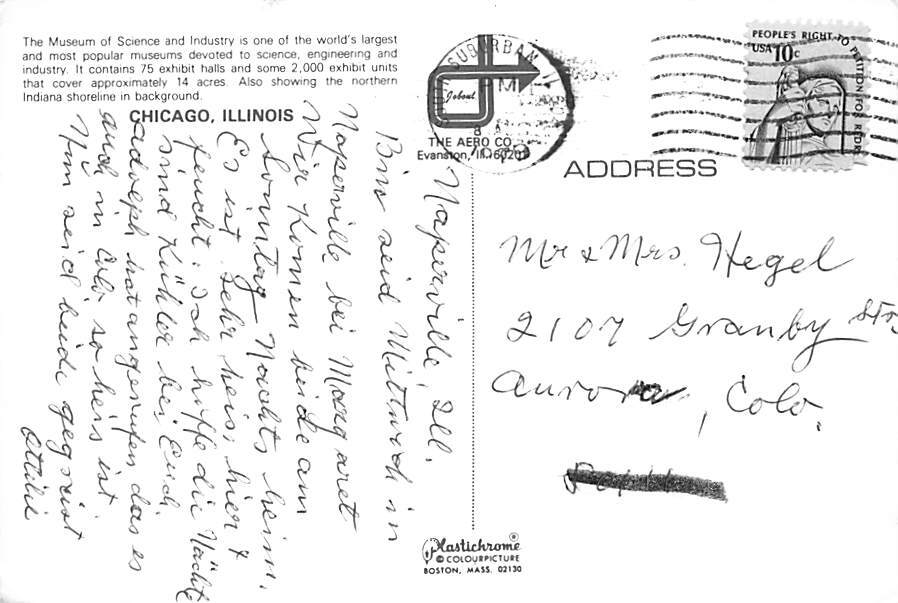 The Museum of Science and Industry is one of the world's largest
and most popular museums devoted to science, engineering and
industry. It contains 75 exhibit halls and some 2,000 exhibit units
that cover approximately 14 acres. Also showing the northern
Indiana shoreline in background.
CHICAGO, ILLINOIS
Naperville, Ill.
Bin seid Mittwoch in
Naperville bei Margaret
Wir komen beide am
Sonntag Nachts heim.
Es ist sehr heis, hier &
feucht. Ich hoffe die Nächte
sind kühler bei Euch
Adolph hat angerufen das es
auch in Colo so heis ist
Nun seid beide gegrüist
Ottilie
SUBURBAN
PM
8
Jobout
THE AERO CO.
Evanston, Ill. 60201
PEOPLE'S RIGHT TO PETITION FOR REDR
USA 10c
ADDRESS
Mr & Mrs. Hegel
2107 Granby Str,
Aurora, Colo.
Plastichrome®
© COLOURPICTURE
BOSTON, MASS. 02130